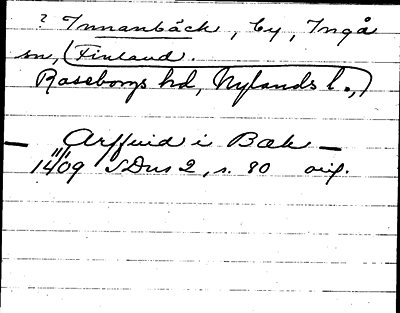 ? Innanbäck, by, Ingå
sn, (Finland.
Raseborgs hd, Nylands l.,)
— Arffuid i Bæk —
14 11/11 09 SDns 2, s. 80 orig.